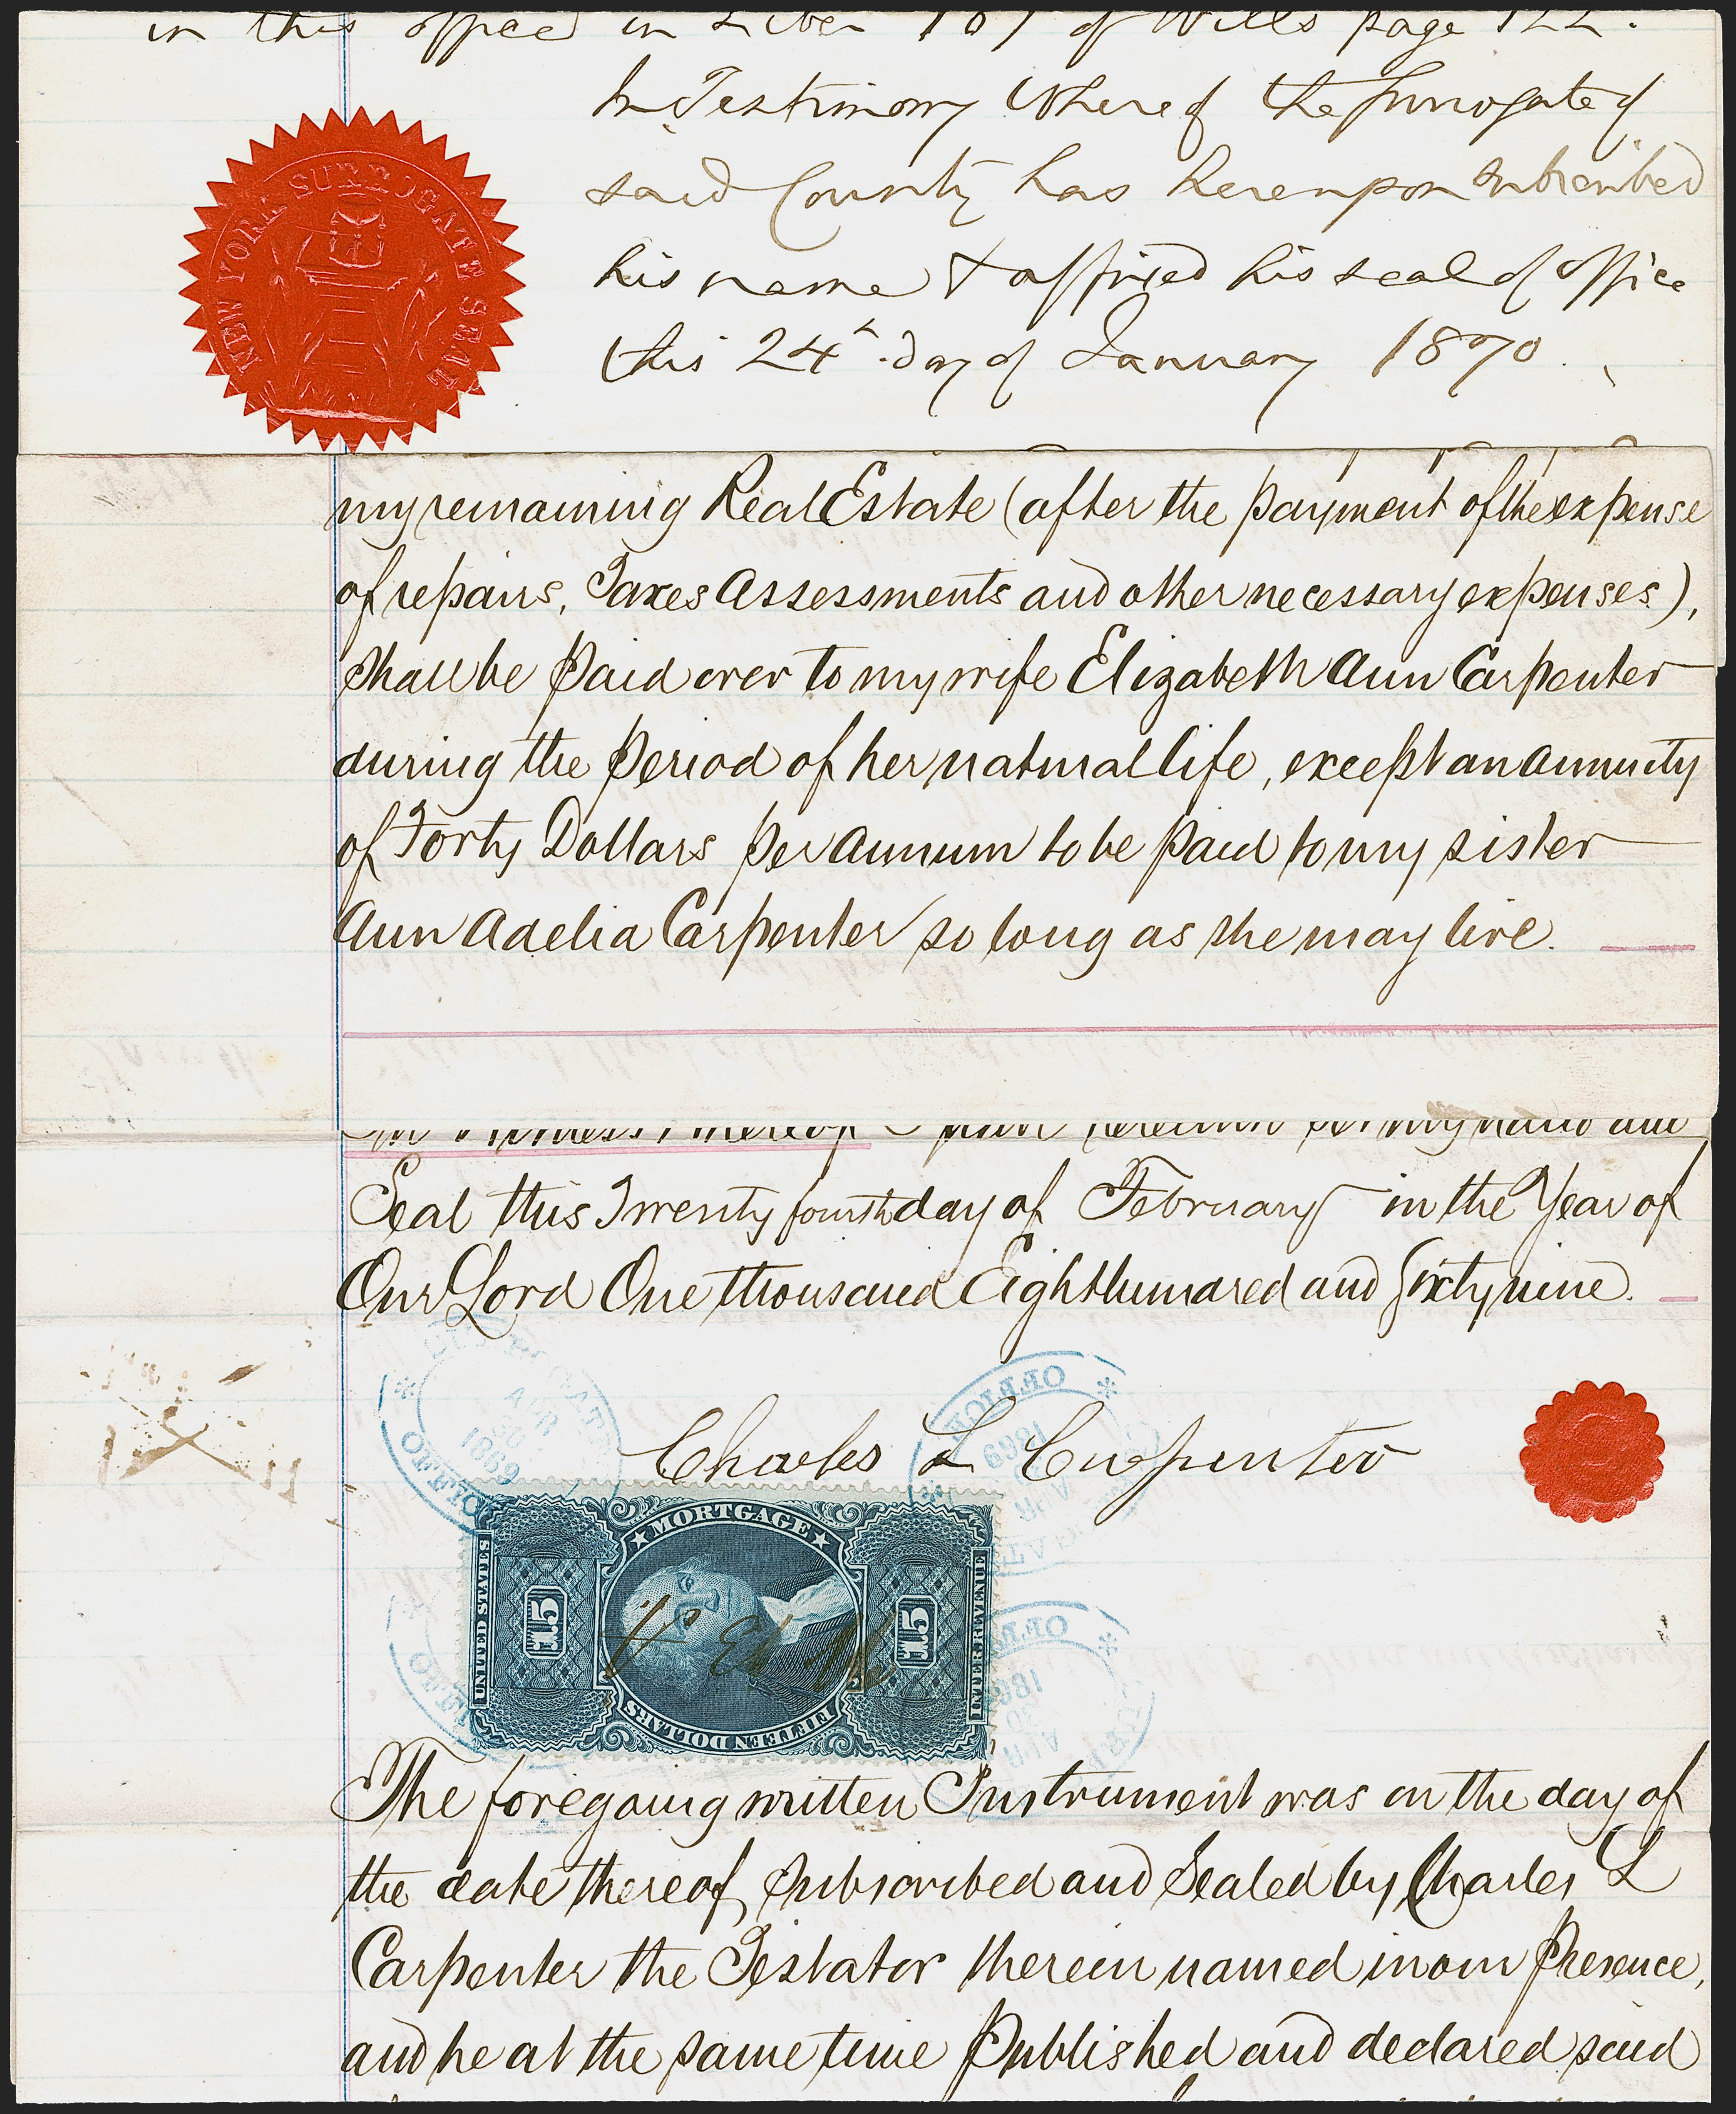 in this office in Liber 187 of Wills page 122.
In Testimony Whereof the Surrogate of
said County has hereunpon subscribed
his name & affixed his seal of office
this 24th day of January 1870.
NEW YORK SURROGATE SEAL
my remaining Real Estate (after the payment of the expense
of repairs, Taxes Assessments and other necessary expenses),
shall be paid over to my wife Elizabeth Ann Carpenter
during the period of her natural life, except an annuity
of Forty Dollars per annum to be paid to my sister
Ann Adelia Carpenter so long as she may live.
In Witness Whereof I have hereunto set my hand and
Seal this Twenty fourth day of February in the Year of
Our Lord One thousand Eight hundred and Sixty nine.
OFFICE APR 30 1869
OFFICE APR 1869
Charles L Carpenter
MORTGAGE
UNITED STATES
15
15
INTER. REVENUE
FIFTEEN DOLLARS
OFFICE
OFFICE APR 30 186
The foregoing written Instrument was on the day of
the date thereof subscribed and Sealed by Charles L
Carpenter the Testator therein named in our Presence,
and he at the same time Published and declared said